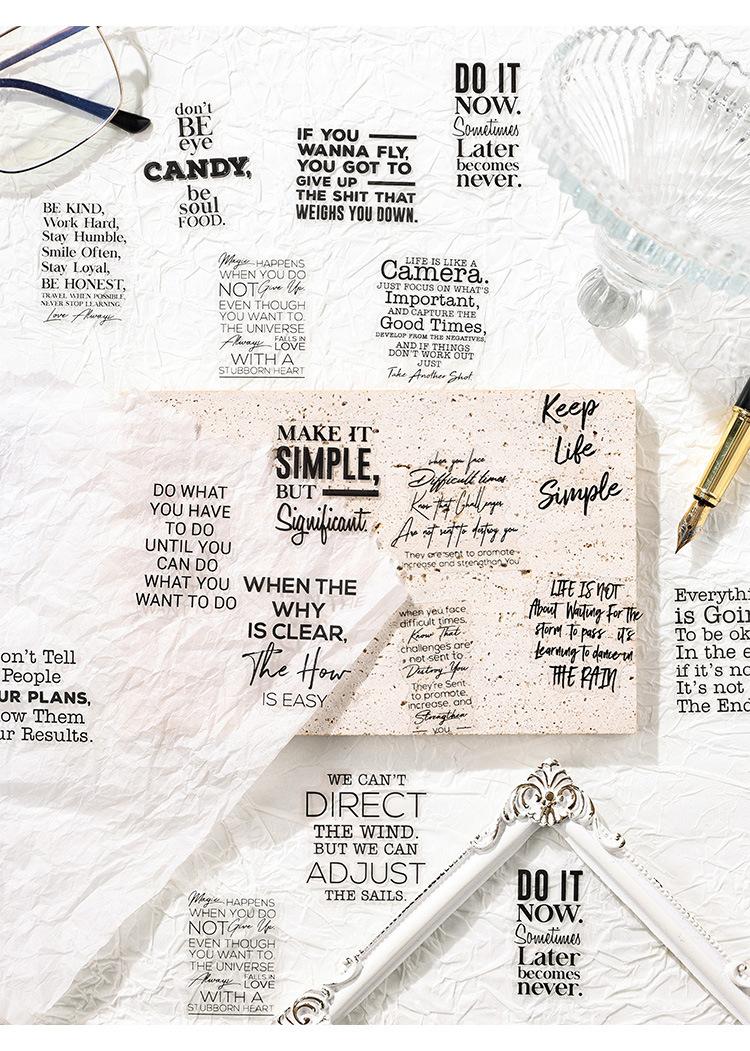 don't
BE
eye
CANDY,
be
soul
FOOD.
IF YOU
WANNA FLY,
YOU GOT TO
GIVE UP
THE SHIT THAT
WEIGHS YOU DOWN.
DO IT
NOW.
Sometimes
Later
becomes
never.
BE KIND,
Work Hard,
Stay Humble,
Smile Often,
Stay Loyal,
BE HONEST,
TRAVEL WHEN POSSIBLE,
NEVER STOP LEARNING.
Love Always
Magic HAPPENS
WHEN YOU DO
NOT Give Up
EVEN THOUGH
YOU WANT TO.
THE UNIVERSE
Always FALLS IN
LOVE
WITH A
STUBBORN HEART
LIFE IS LIKE A
Camera.
JUST FOCUS ON WHAT'S
Important,
AND CAPTURE THE
Good Times,
DEVELOP FROM THE NEGATIVES,
AND IF THINGS
DON'T WORK OUT
JUST
Take Another Shot.
MAKE IT
SIMPLE,
BUT
Significant.
when you face
Difficult times
Know that Challenges
Are not sent to destroy you
They are sent to promote
increase and strengthen You
Keep
Life
Simple
DO WHAT
YOU HAVE
TO DO
UNTIL YOU
CAN DO
WHAT YOU
WANT TO DO
WHEN THE
WHY
IS CLEAR,
The How
IS EASY
when you face
difficult times,
Know That
challenges are
not sent to
Destroy You
They're Sent
to promote,
increase, and
Strengthen
you
LIFE IS NOT
About Waiting For the
storm To pass it's
Learning to dance in
THE RAIN
Everythi
is Goin
To be ok
In the e
if it's no
It's not
The End
on't Tell
People
UR PLANS,
ow Them
ur Results.
WE CAN'T
DIRECT
THE WIND.
BUT WE CAN
ADJUST
THE SAILS.
Magic HAPPENS
WHEN YOU DO
NOT Give Up
EVEN THOUGH
YOU WANT TO.
THE UNIVERSE
Always FALLS IN
LOVE
WITH A
STUBBORN HEART
DO IT
NOW.
Sometimes
Later
becomes
never.